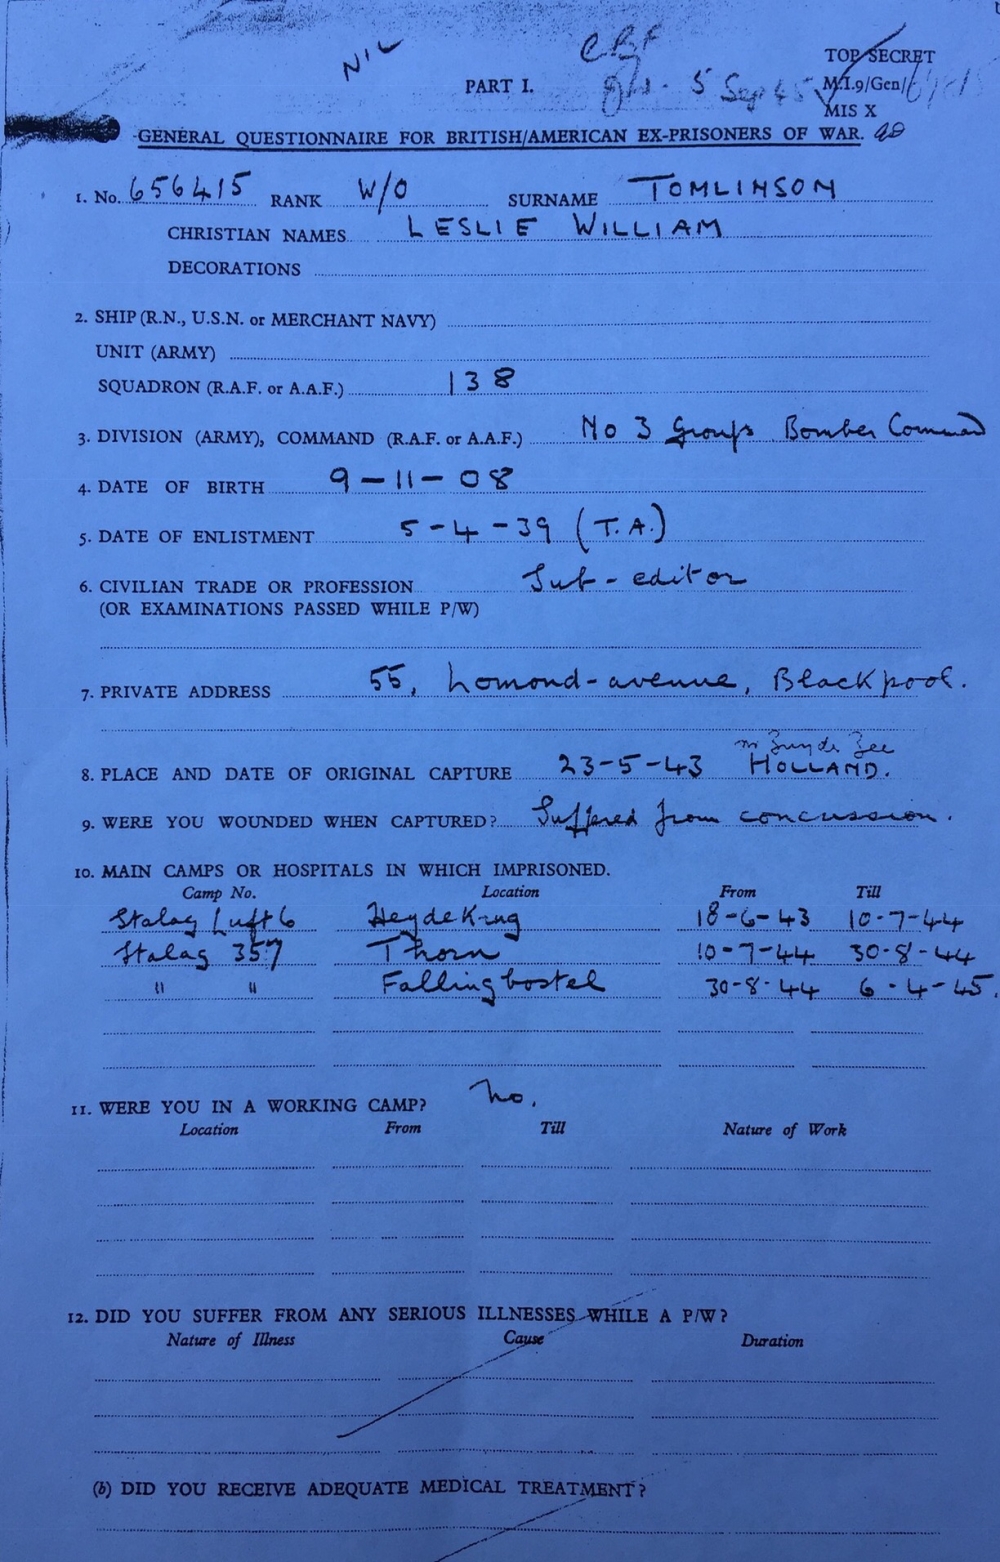 NIL
TOP SECRET
PART I.
5 Sep 45
M.I.9/Gen/
MIS X
GENERAL QUESTIONNAIRE FOR BRITISH/AMERICAN EX-PRISONERS OF WAR.
1. No. 656415 RANK W/O SURNAME TOMLINSON
CHRISTIAN NAMES LESLIE WILLIAM
DECORATIONS
2. SHIP (R.N., U.S.N. or MERCHANT NAVY)
UNIT (ARMY)
SQUADRON (R.A.F. or A.A.F.) 138
3. DIVISION (ARMY), COMMAND (R.A.F. or A.A.F.) No 3 Group Bomber Command
4. DATE OF BIRTH 9-11-08
5. DATE OF ENLISTMENT 5-4-39 (T.A.)
6. CIVILIAN TRADE OR PROFESSION Sub-editor
(OR EXAMINATIONS PASSED WHILE P/W)
7. PRIVATE ADDRESS 55, Lomond-avenue, Blackpool.
Zuyde Zee
8. PLACE AND DATE OF ORIGINAL CAPTURE 23-5-43 HOLLAND.
9. WERE YOU WOUNDED WHEN CAPTURED? Suffered from concussion.
10. MAIN CAMPS OR HOSPITALS IN WHICH IMPRISONED.
Camp No. Location From Till
Stalag Luft 6 HeydeKrug 18-6-43 10-7-44
Stalag 357 Thorn 10-7-44 30-8-44
" " Fallingbostel 30-8-44 6-4-45.
11. WERE YOU IN A WORKING CAMP? No.
Location From Till Nature of Work
12. DID YOU SUFFER FROM ANY SERIOUS ILLNESSES WHILE A P/W?
Nature of Illness Cause Duration
(b) DID YOU RECEIVE ADEQUATE MEDICAL TREATMENT?